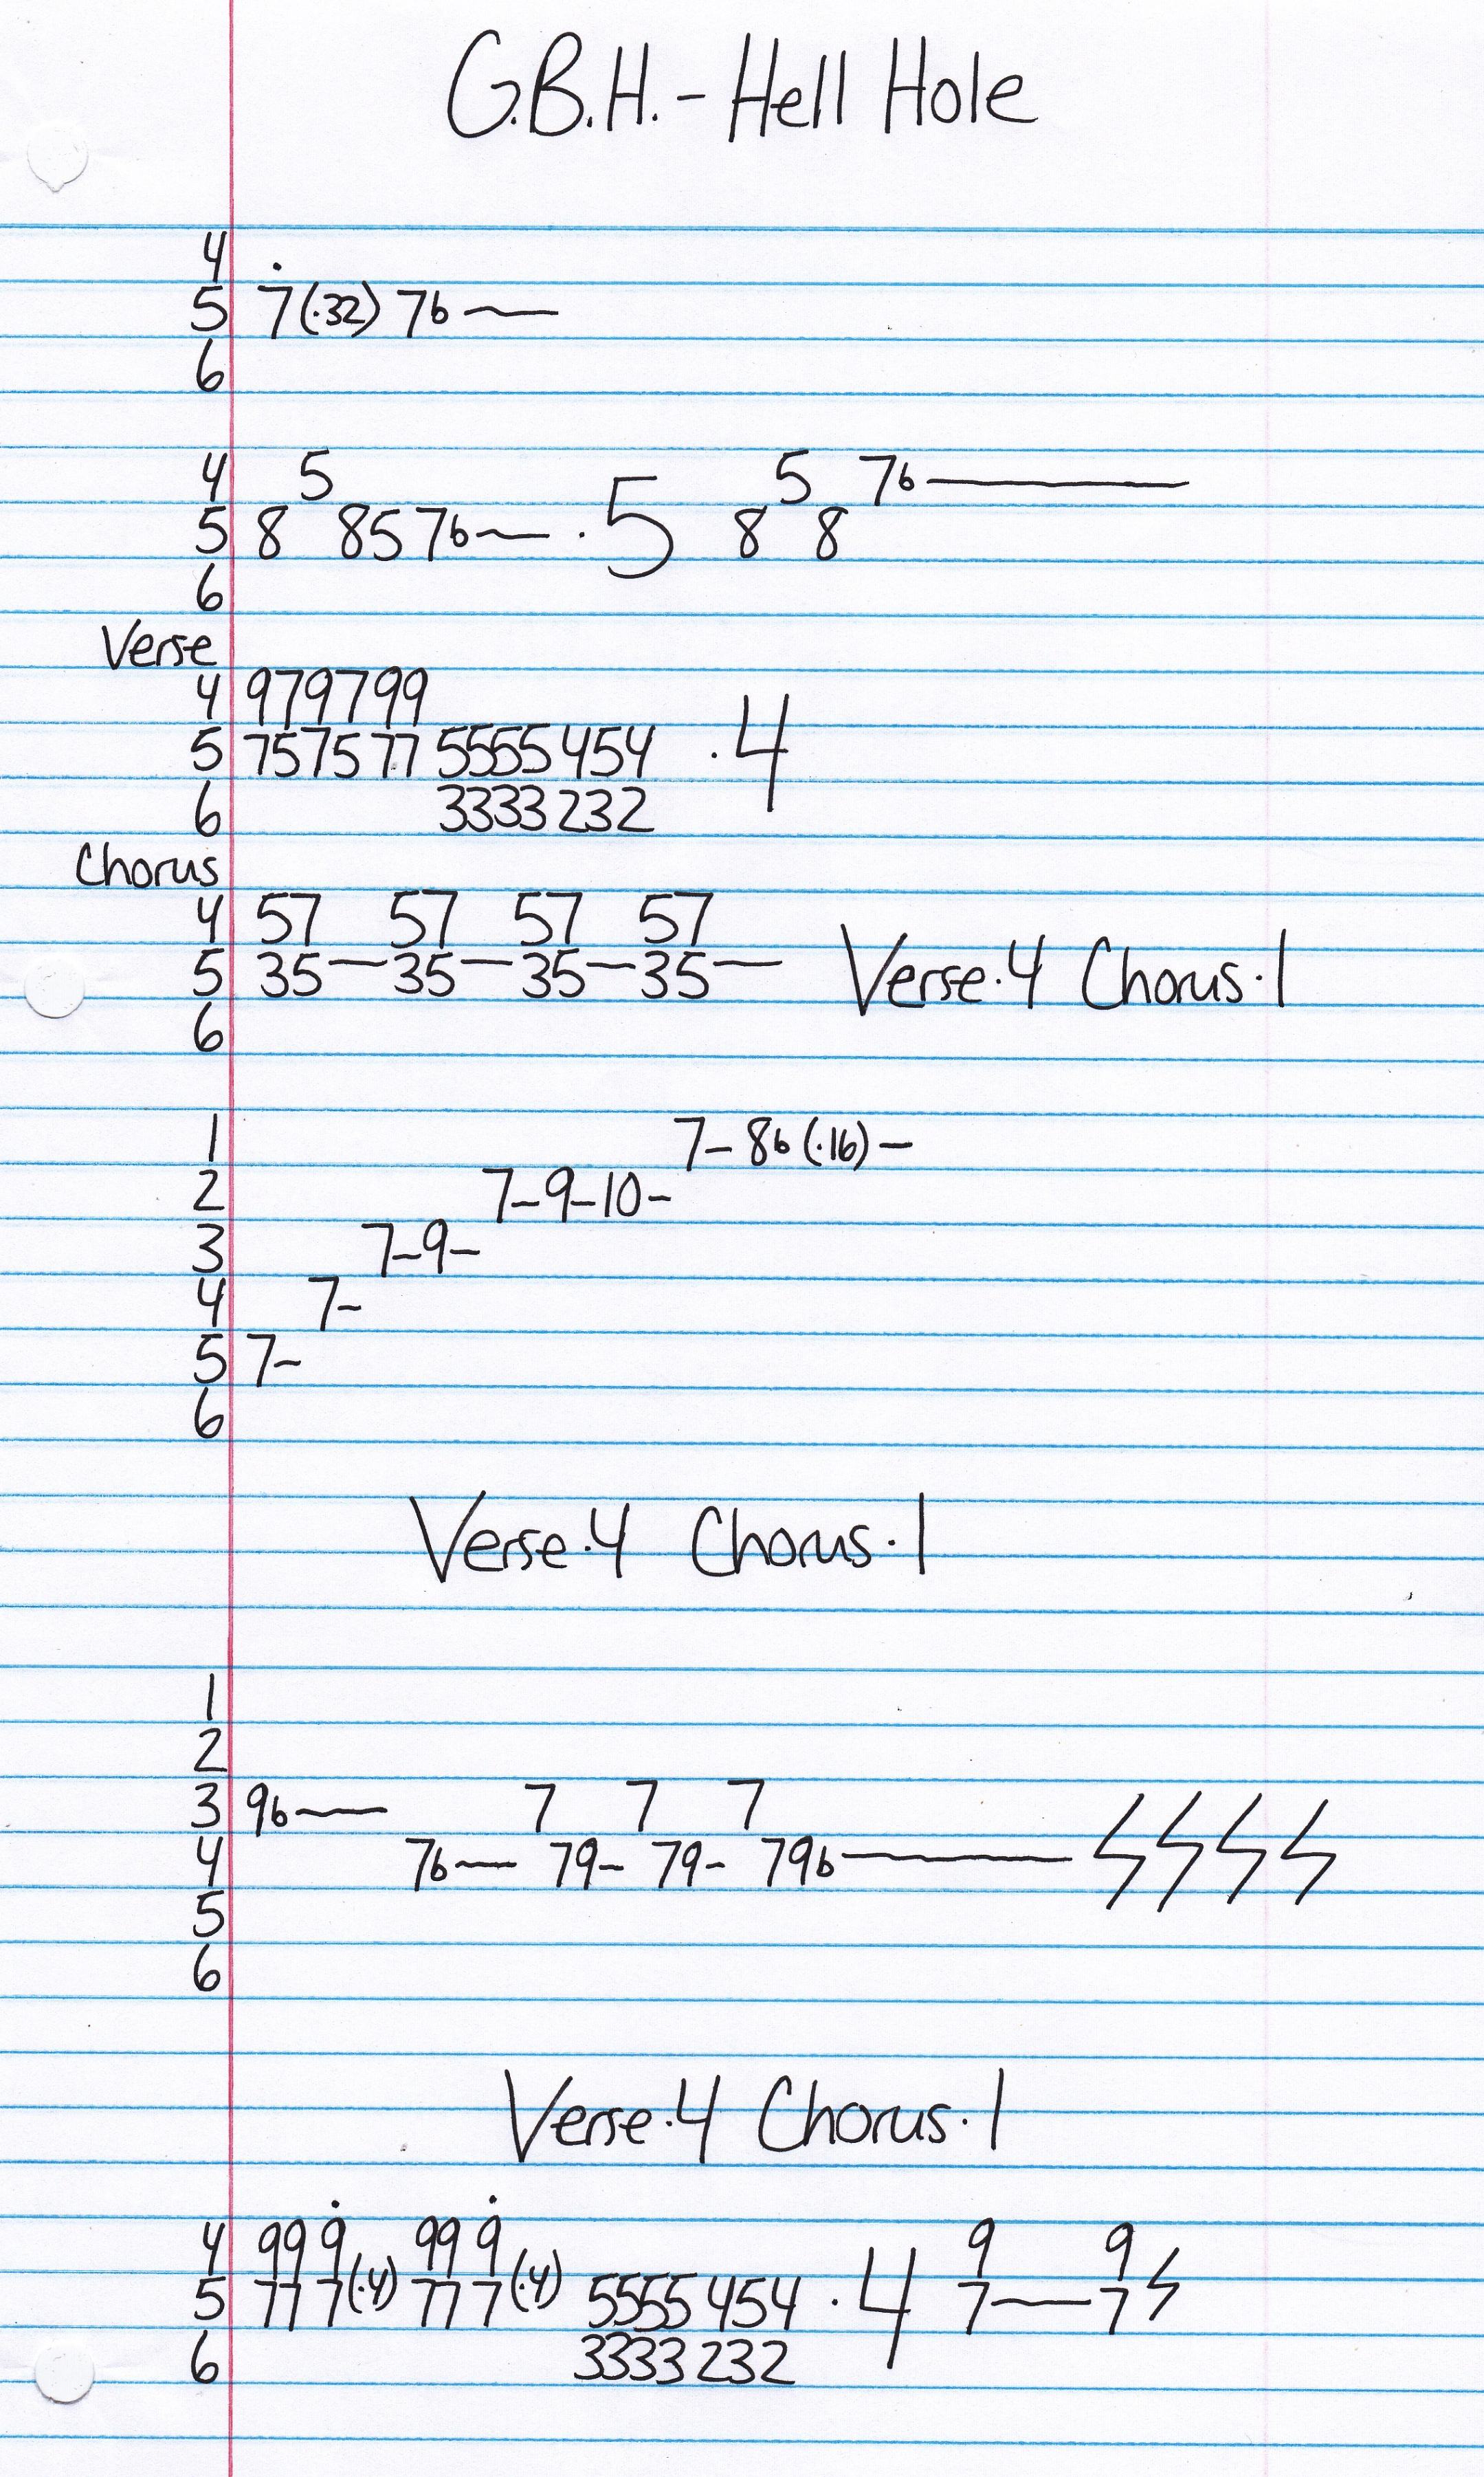 G.B.H. - Hell Hole
4
5 7(·32) 7b —
6
4 5 5 7b —
5 8 85 7b — ·5 8 8
6
Verse
4 979799
5 757577 5555 454 ·4
6 3333 232
Chorus
4 57 57 57 57
5 35 — 35 — 35 — 35 — Verse·4 Chorus·1
6
1 7- 8b (·16) -
2 7-9-10-
3 7-9-
4 7-
5 7-
6
Verse·4 Chorus·1
1
2
3 9b — 7 7 7
4 7b — 79- 79- 79b —
5
6
Verse·4 Chorus·1
4 99 9 99 9 9 9
5 77 7(·4) 77 7(·4) 5555 454 ·4 7 — 7
6 3333 232